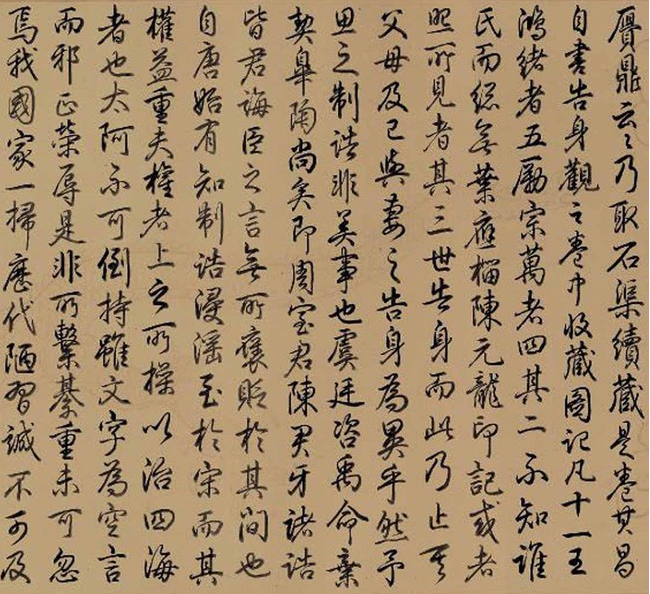 贗鼎云〻乃取石渠續藏是卷其昌
自書告身觀之卷中收藏圖記凡十一王
鴻緒者五勵宗萬者四其二不知誰
氏而縂無葉應榴陳元龍印記或者
照所見者其三世告身而此乃止其
父母及已與妻之告身為異乎然予
思之制誥非美事也虞廷咨禹命棄
契皋陶尚矣即周室君陳君牙諸誥
皆君誨臣之言無所襃貶於其間也
自唐始有知制誥浸滛至於宋而其
權益重夫權者上之所操以治四海
者也太阿不可倒持雖文字為空言
而邪正榮辱是非所繫綦重未可忽
焉我國家一掃歷代陋習誠不可及